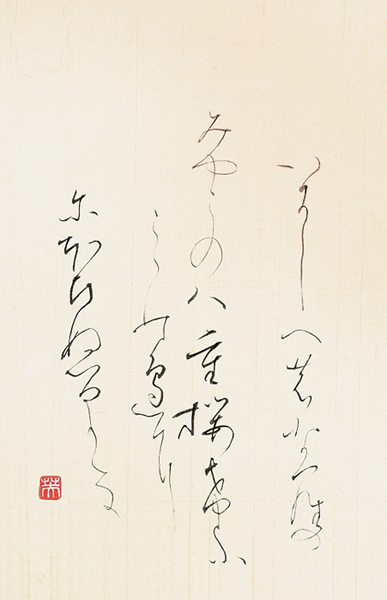 いにしへの奈良の
みやこの八重桜けふ
こゝのへに
にほひぬるかな